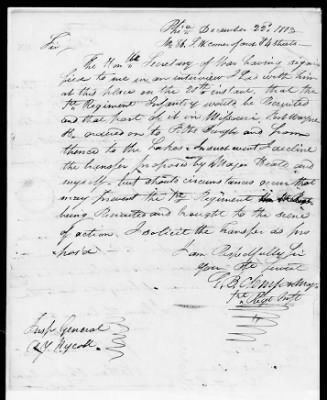 Phia December 22d 1813
No 86. S. W. corner of and & 4 Streets
Sir
The Honble Secretary of War having signi
fied to me in an interview I had with him
at this place on the 20th instant, that the
Regiment Infantry would be Recruited
and that part of it in Missouri, Fort Wayne
Be ordered on to Pittsburgh and from
thence to the Lakes. In such event I decline
the transfer proposed by Major Heale and
myself. but should circumstances occur that
may prevent the Regiment
being Recruited and brought to the scene
of action. I solicit the transfer as pro
posed
I am Respectfully Sir
Your Obt Servt
Regt Inft
Insp. General
A. Y. Nycoll